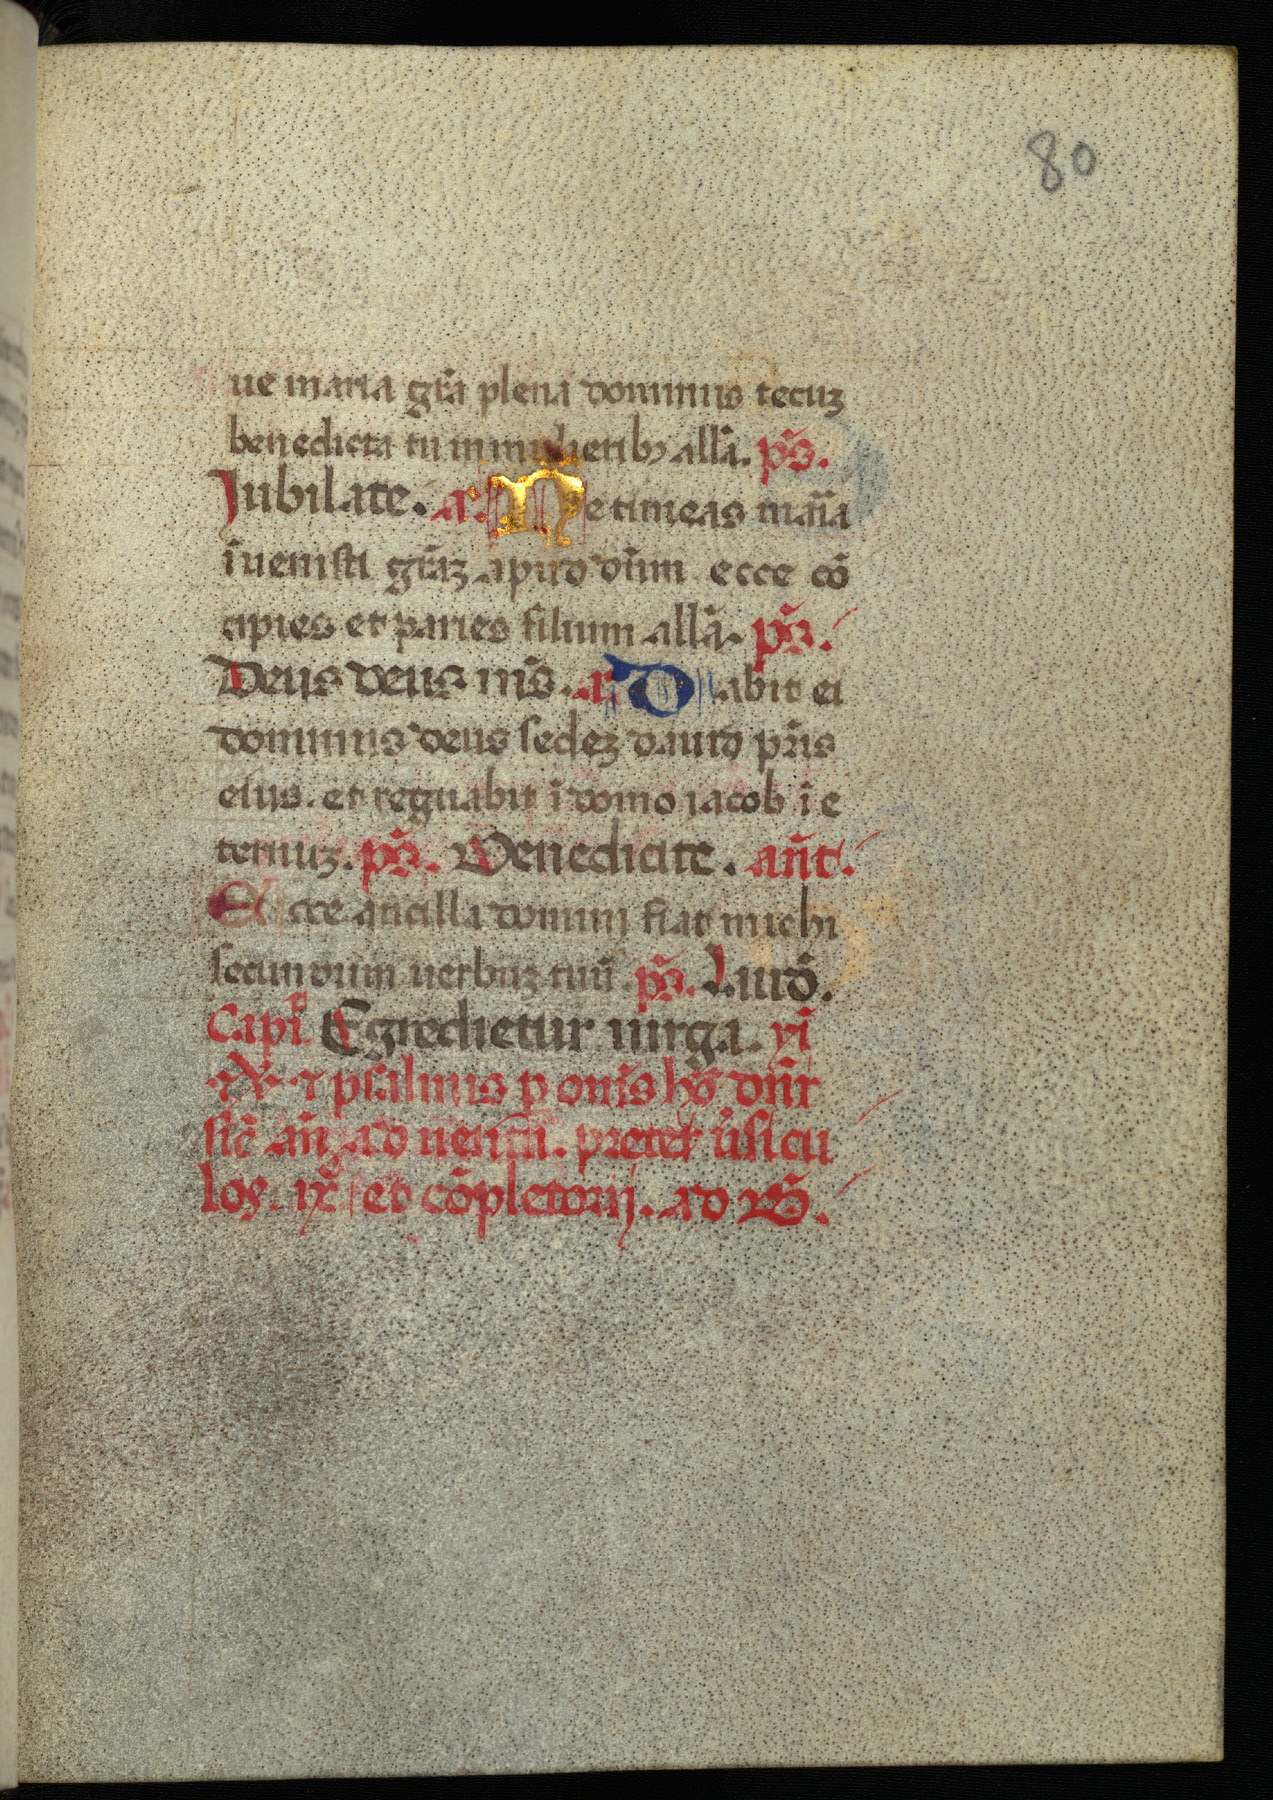 80
ue maria gr̄a plena dominus tecuz
benedicta tu in mulieribꝫ all̄a. ps̄.
Jubilate. a. Ne timeas mar̄ia
īuenisti gr̄az apud dn̄m ecce cō
cipies et paries filium all̄a. ps̄.
Deus deus m̄s. a. Dabit ei
dominus deus sedez dauid pr̄is
eius. et regnabit ī domo iacob ī e
ternuz. ps̄. Benedicite. an̄t.
Ecce ancilla domini fiat michi
secundum uerbuz tuū. ps̄. Laud̄.
Capi. Egredietur uirga. ym̄
psalmus p om̄s dnr̄
sic̄ an̄ aduentū. preter ūsicu
los. et cōpletorij. ad B.